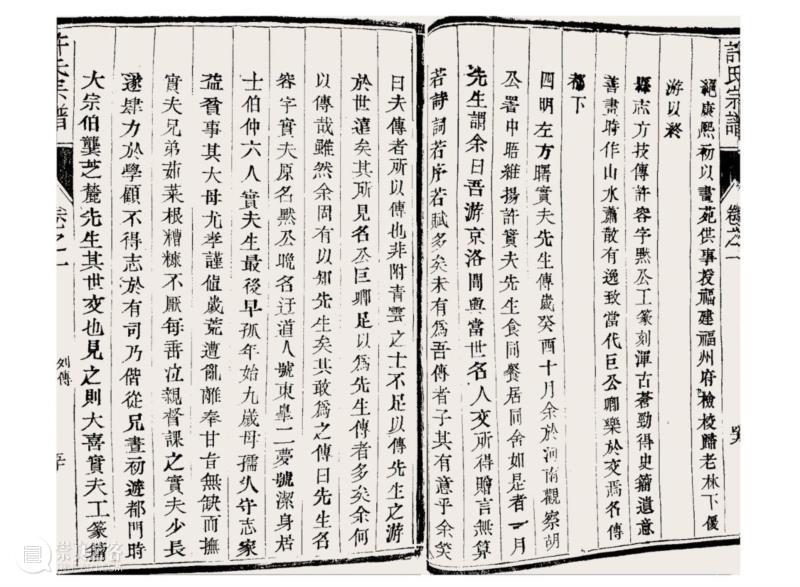 許氏宗譜
卷之一
䋲康熙初以畫苑供事授福建福州府檢校歸老林下優
游以終
縣志方技傳許容字默公工篆刻渾古蒼勁得史籀遺意
善畫時作山水蕭散有逸致當代巨公卿樂於交焉名傳
都下
四明左方曙實夫先生傳歲癸酉十月余於河南觀察胡
公署中晤維揚許實夫先生食同餐居同舍如是者一月
先生謂余曰吾游京洛間與當世名人交所得贈言無算
若詩詞若序若賦多矣未有為吾傳者子其有意乎余笑
曰夫傳者所以傳也非附青雲之士不足以傳先生之游
於世遠矣其所見名公巨卿足以為先生傳者多矣余何
以傳哉雖然余固有以知先生矣其敢為之傳曰先生名
容字實夫原名黙公晚名迂道人號東臯二夢號潔身居
士伯仲六人實夫生最後早孤年始九歲母孺人守志家
益貧事其大母尤孝謹值歲荒遭亂離奉甘旨無缺而撫
實夫兄弟茹菜根糟糠不厭每吞泣親督課之實夫少長
遂肆力於學顧不得志於有司乃偕從兄畫初遊都門時
大宗伯龔芝麓先生其世交也見之則大喜實夫工篆籀
許氏宗譜
卷之一
列傳